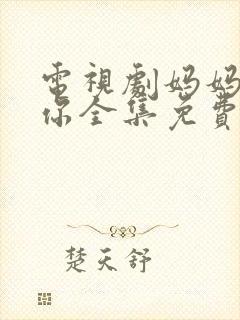 電視劇妈妈
你全集免費
楚天舒